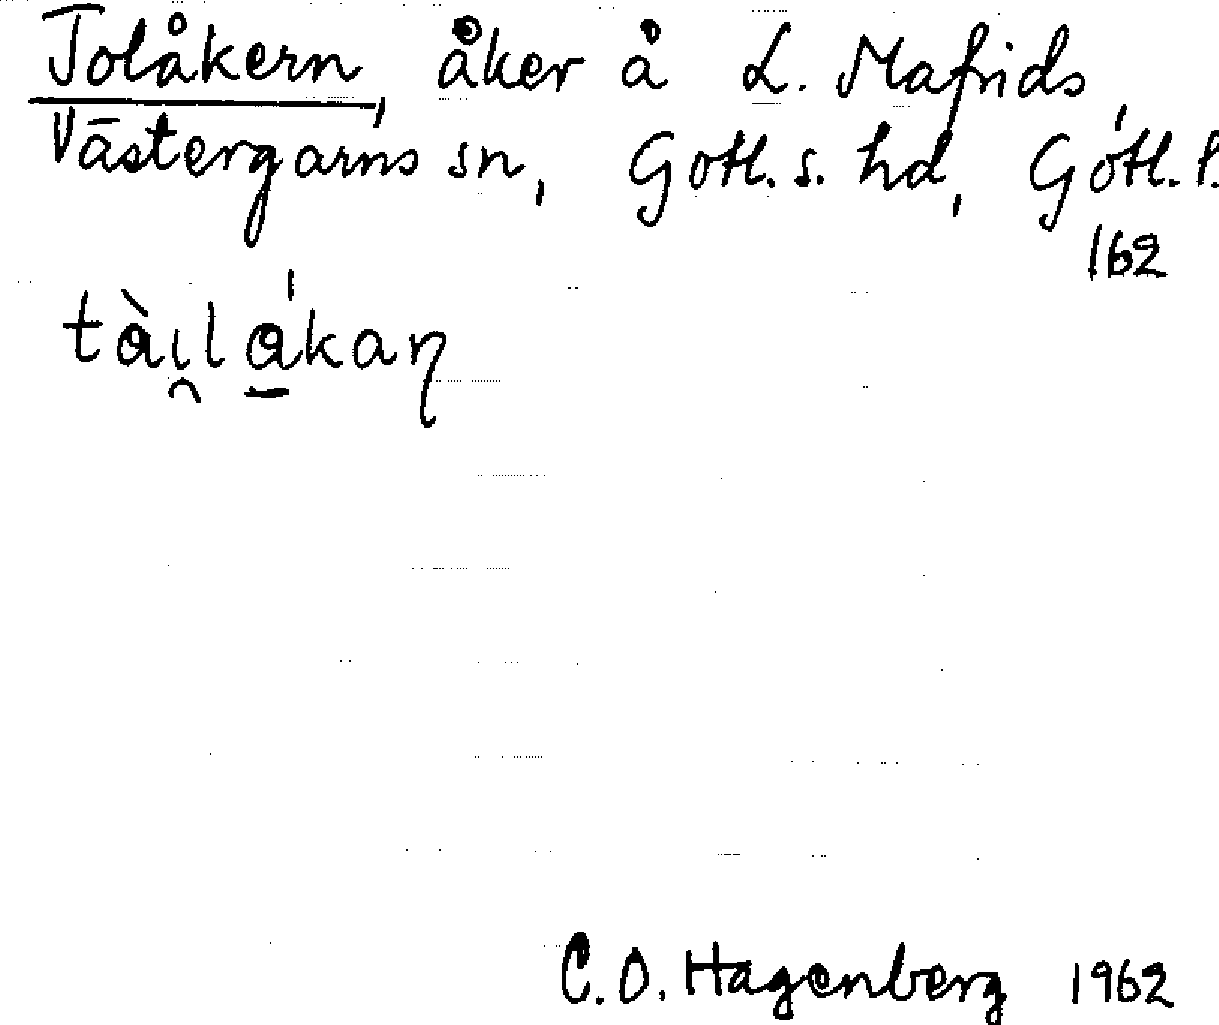 Tolåkern, åker å L. Mafrids,
Västergarns sn, Gotl. s. hd, Gotl. l.
162
tài̯lákaɳ
C. O. Hagenberg 1962